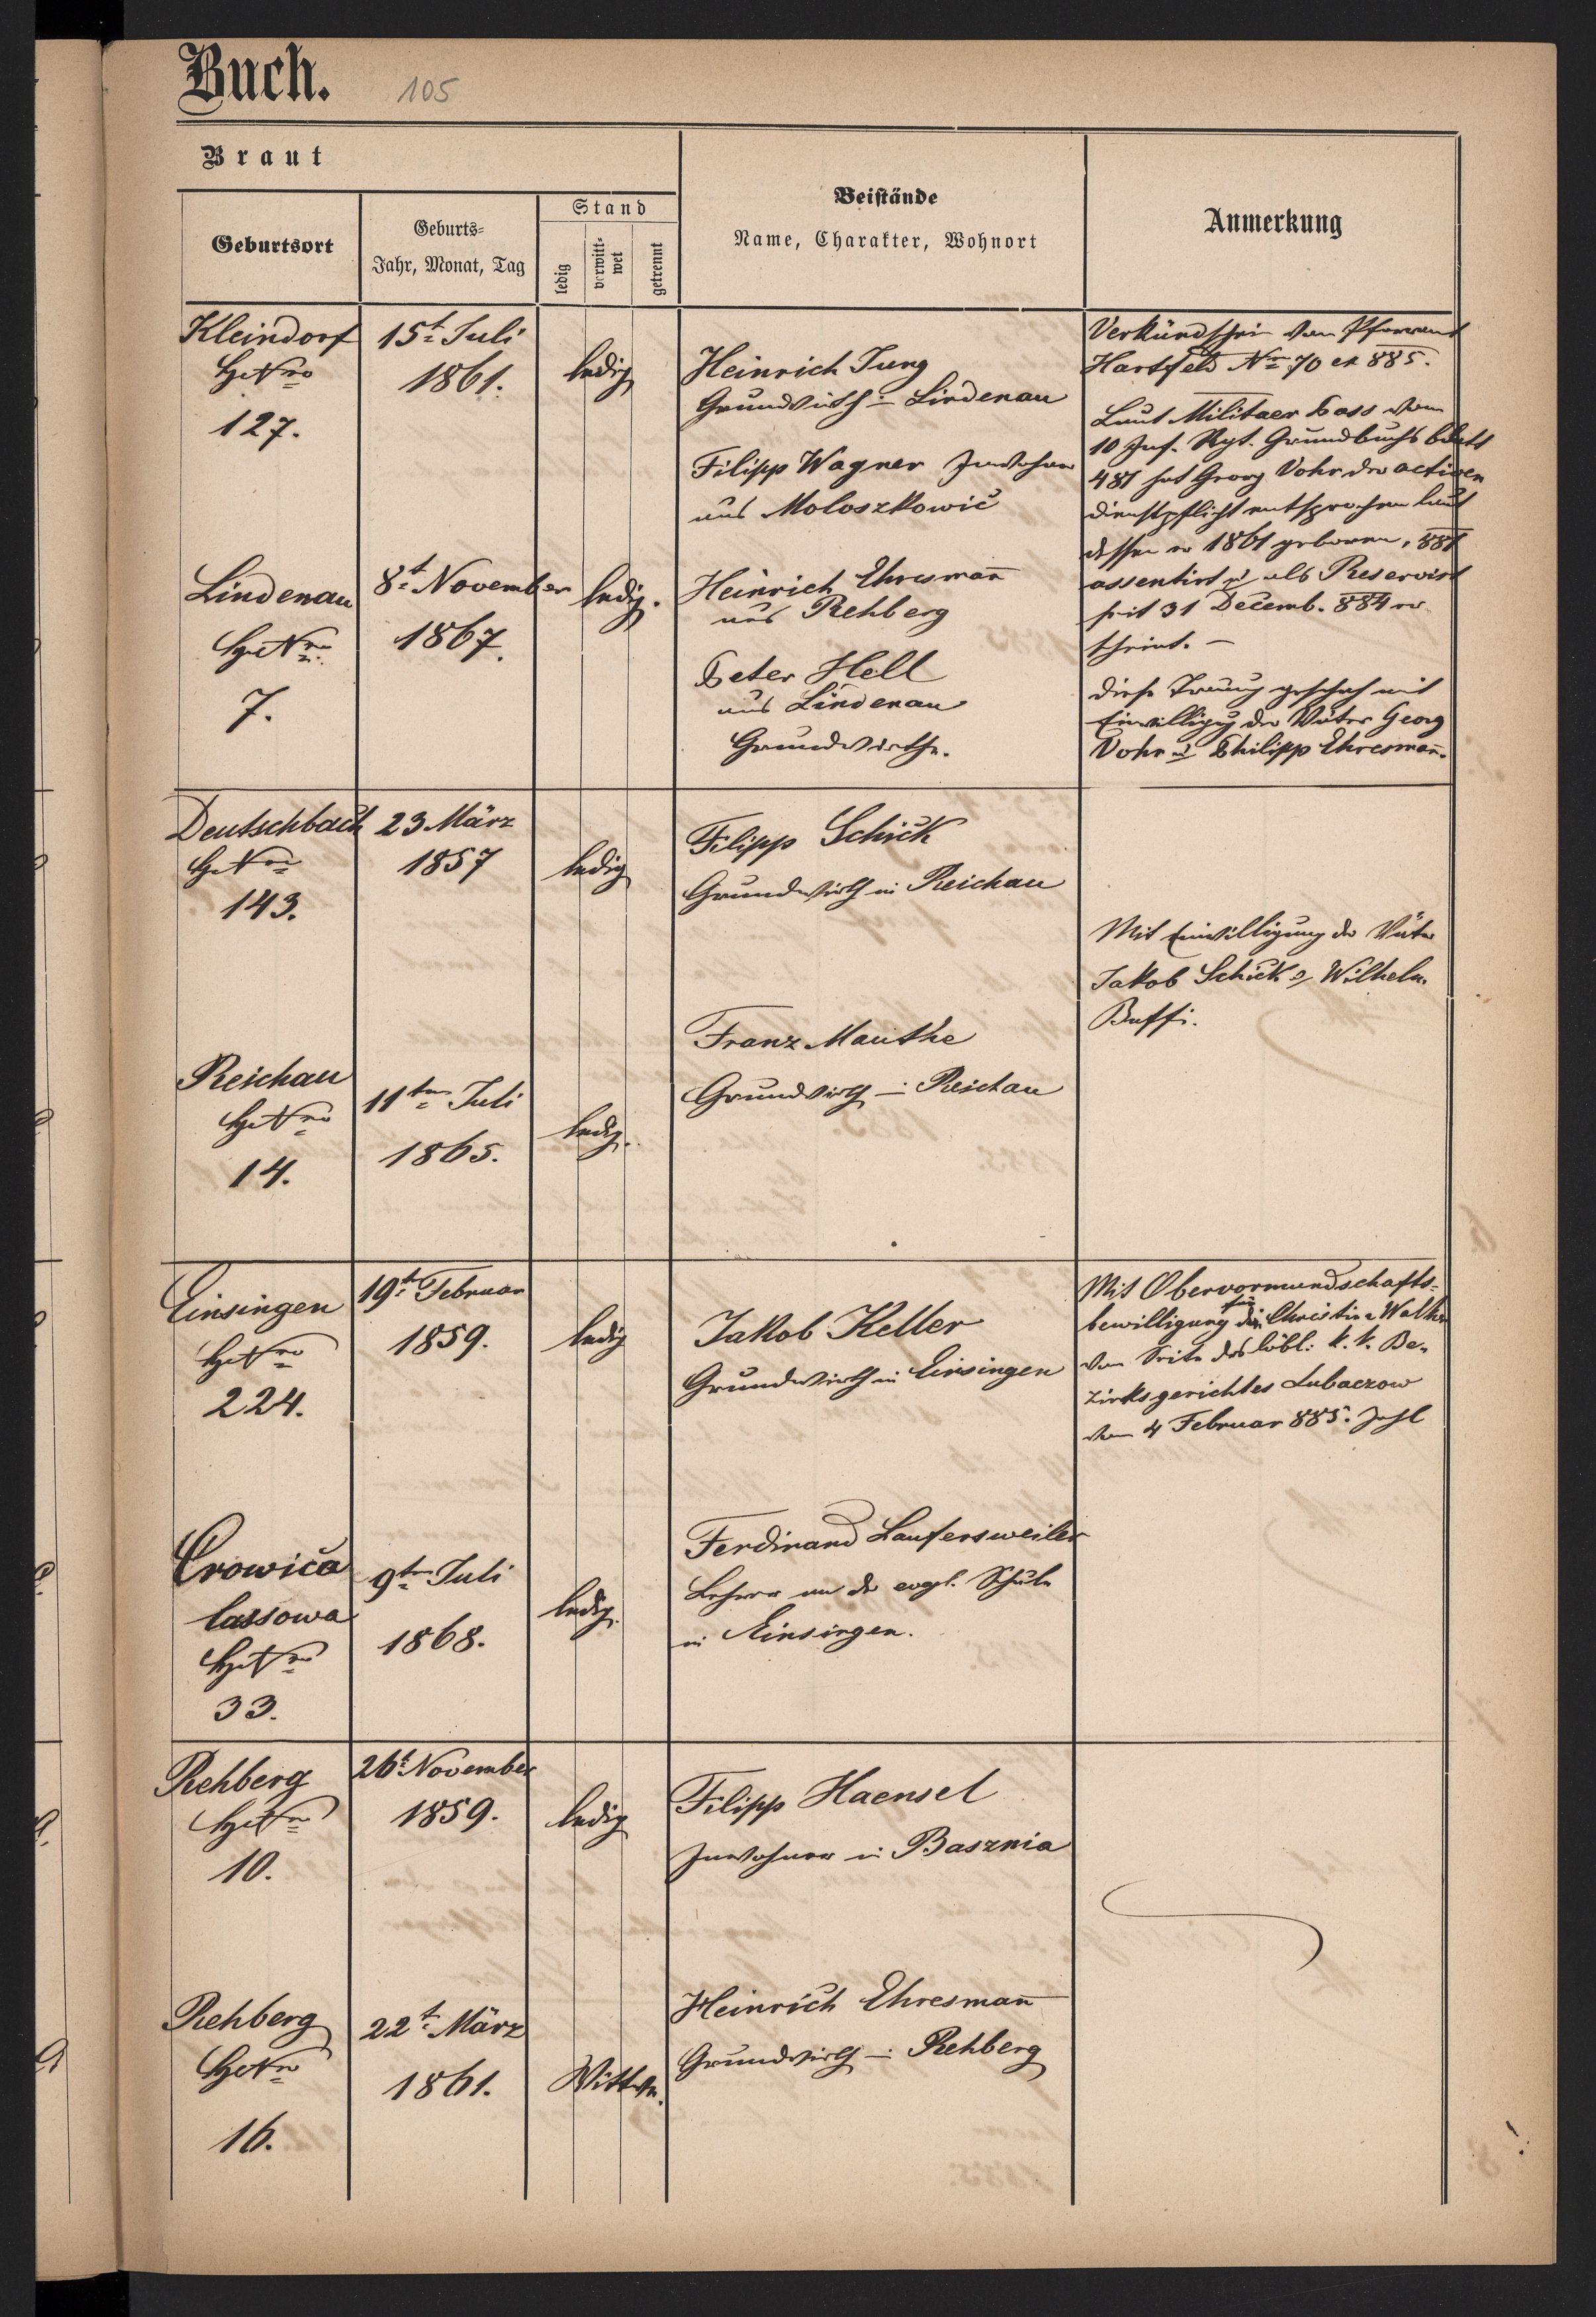 Buch. 105
Braut
Geburtsort
Geburts-
Jahr, Monat, Tag
Stand
ledig
verwitt-
wet
getrennt
Beistände
Name, Charakter, Wohnort
Anmerkung
Kleindorf
HsNro
127.
15t Juli
1861.
ledig
Heinrich Jung
Grundwirth in Lindenau
Filipp Wagner Inwohner
aus Moloszkowić
Verkündschein vom Pfarramt
Hartfeld Nro 70 ex 885.
Laut Militaer Pass vom
10 Inf. Rgt. Grundbuchsblatt
481 hat Georg Vohr der activen
dienstpflicht entsprochen laut
dessen er 1861 geboren, 881
assentirt u als Reservist
seit 31 Decemb. 884 er
scheint. –
Lindenau
HsNro
7.
8t November
1867.
ledig.
Heinrich Ehresmann̄
aus Rehberg
Peter Hell
aus Lindenau
Grundwirthe.
diese Trauung geschah mit
Einwilligung der Väter Georg
Vohr u Philipp Ehresman̄.
Deutschbach
HsNro
143.
23 März
1857
ledig
Filipp Schick
Grundwirth in Reichau
Mit Einwilligung der Väter
Jakob Schick & Wilhelm
Buffi.
Reichau
HsNro
14.
11ten Juli
1865.
ledig.
Franz Mauthe
Grundwirth in Reichau
Einsingen
HsNro
224.
19t Februar
1859.
ledig
Jakob Keller
Grundwirth in Einsingen
Mit Obervormundschafts-
bewilligung für die Christine Walter
von Seite des löbl: k. k. Be-
zirksgerichtes Lubaczow
vom 4 Februar 885. Zahl
Crowića
lassowa
HsNro
33.
9ten Juli
1868.
ledig.
Ferdinand Laufersweiler
Lehrer an der evgl. Schule
in Einsingen.
Rehberg
HsNro
10.
26t November
1859.
ledig
Filipp Haensel
Inwohner in Basznia
Rehberg
HsNro
16.
22t März
1861.
Wittwe.
Heinrich Ehresman̄
Grundwirth in Rehberg